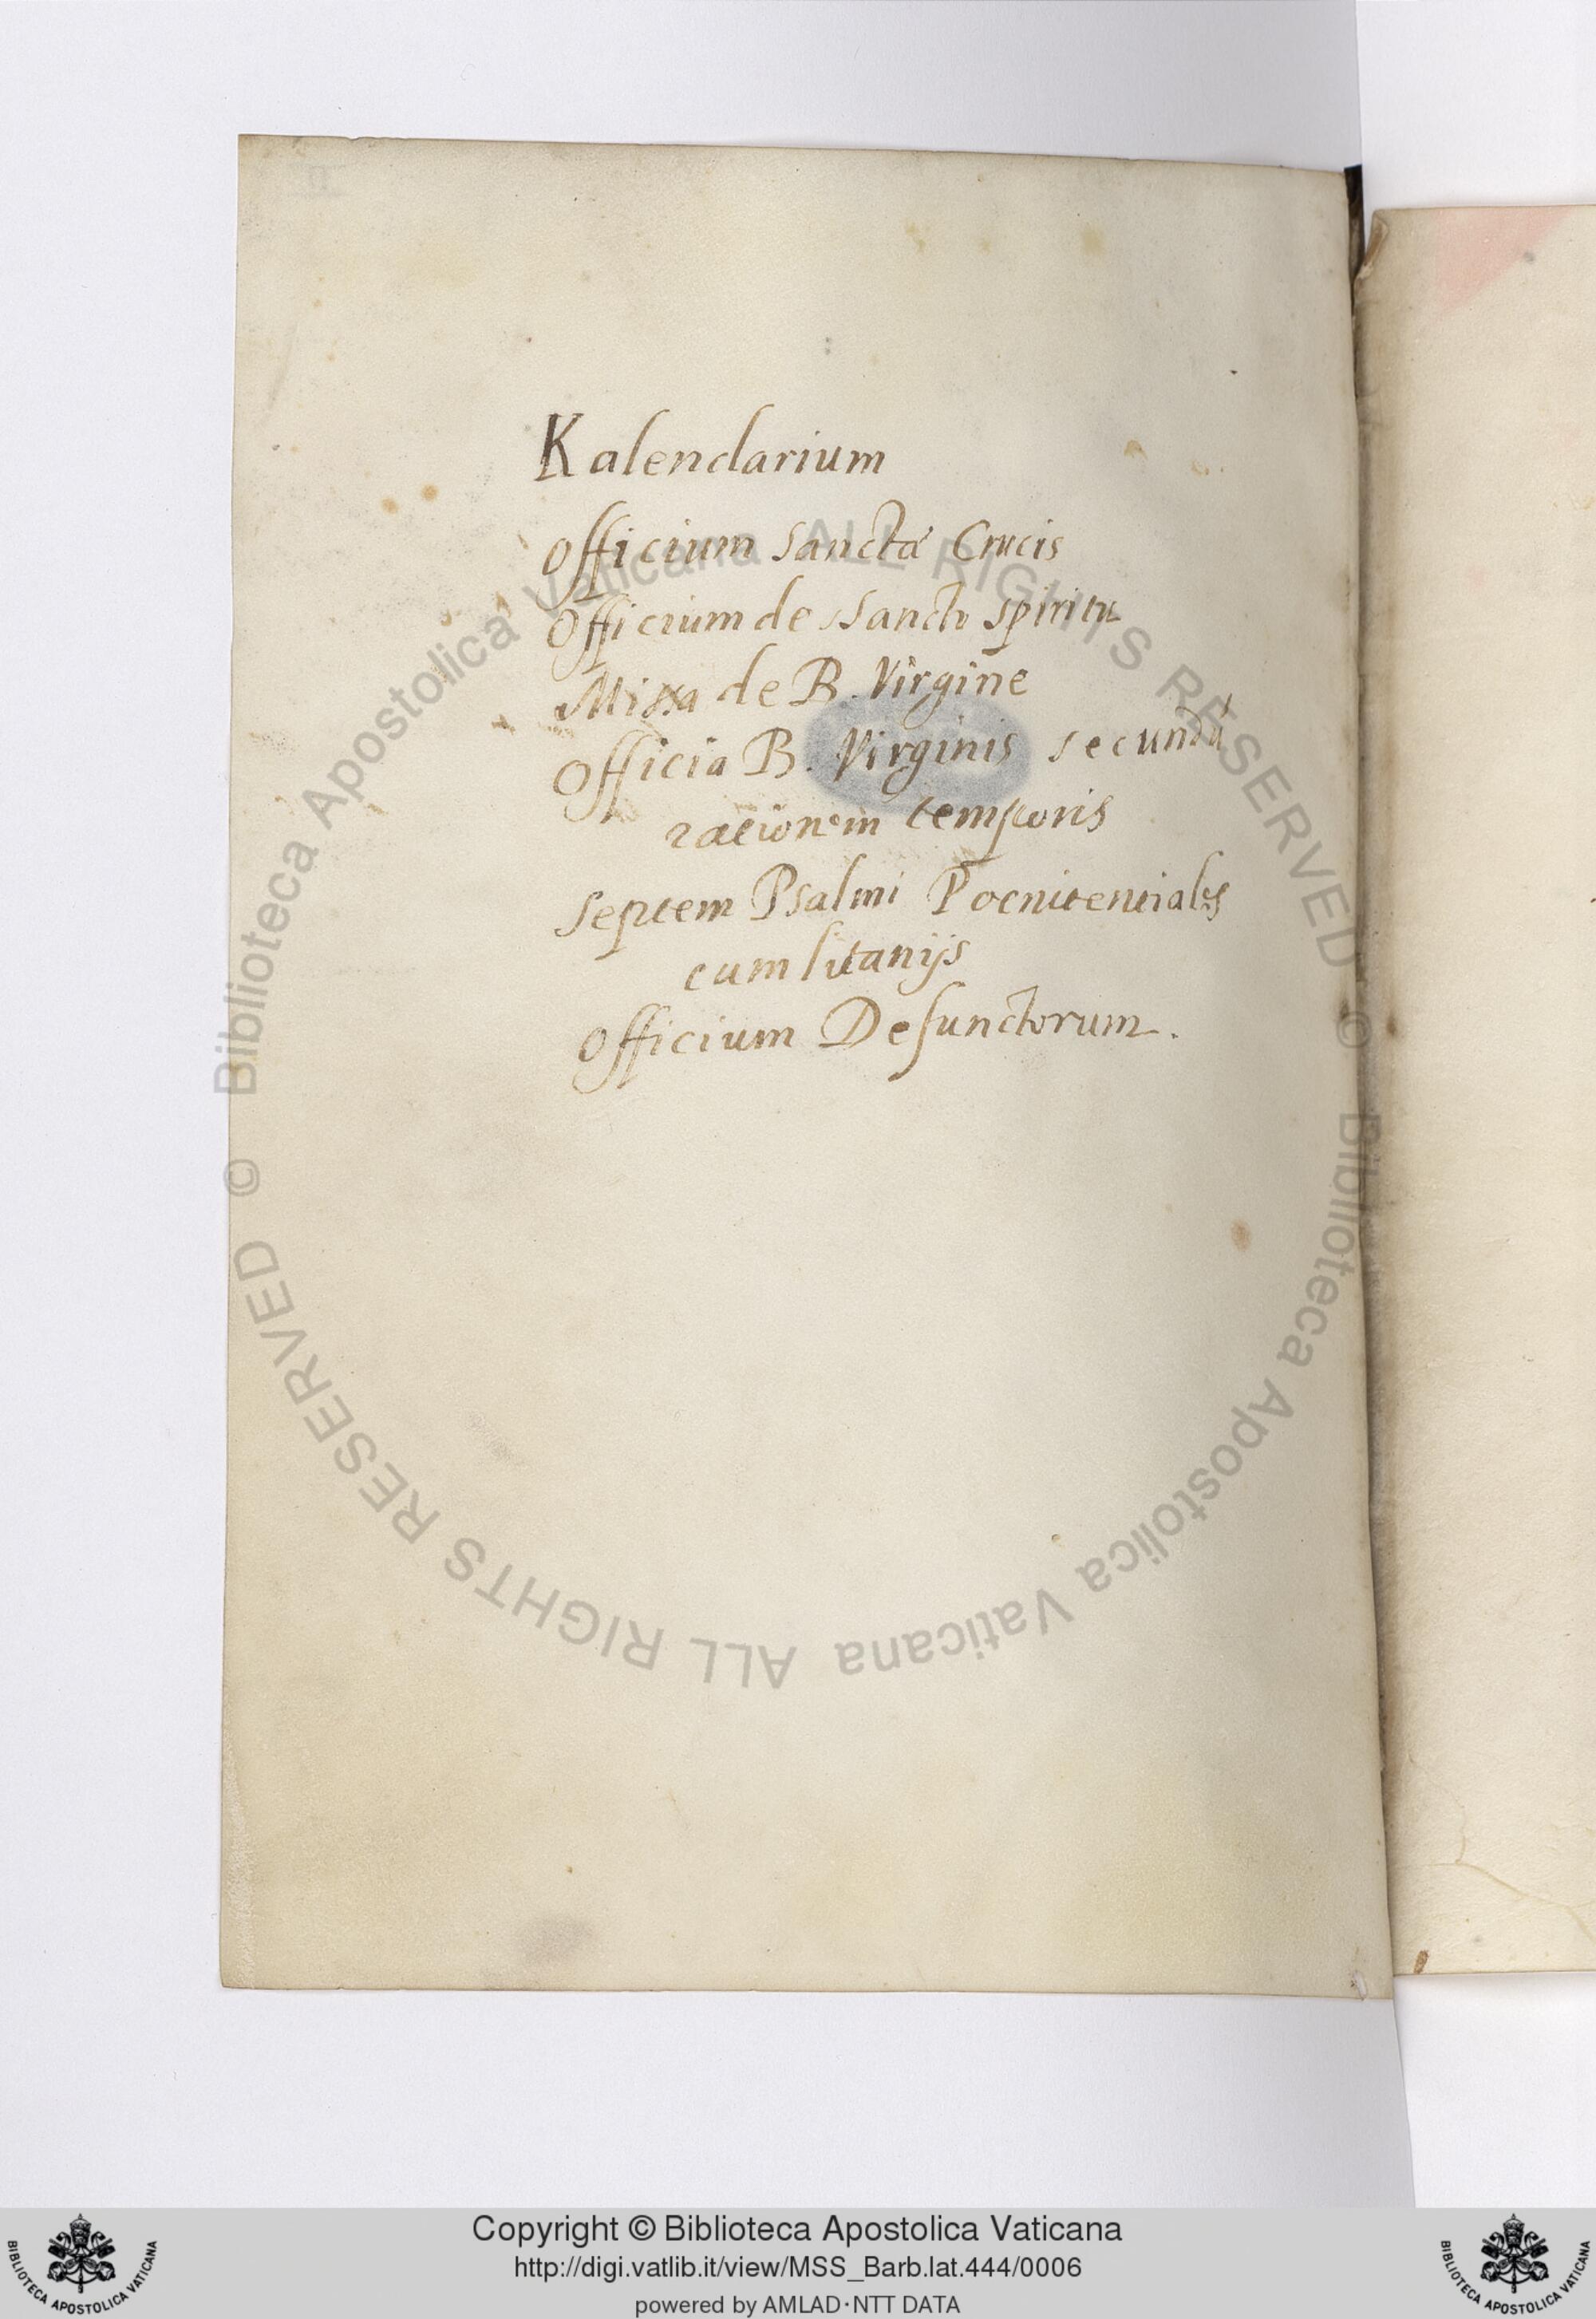 Kalendarium
Officium Sanctæ Crucis
Officium de Sancto Spiritu
Missa de B. Virgine
Officia B. Virginis secundũ
rationem temporis
Septem Psalmi Poenitentiales
cum litanijs
Officium Defunctorum.
© Biblioteca Apostolica Vaticana ALL RIGHTS RESERVED © Biblioteca Apostolica Vaticana ALL RIGHTS RESERVED
Copyright © Biblioteca Apostolica Vaticana
http://digi.vatlib.it/view/MSS_Barb.lat.444/0006
powered by AMLAD·NTT DATA
BIBLIOTECA APOSTOLICA VATICANA
BIBLIOTECA APOSTOLICA VATICANA